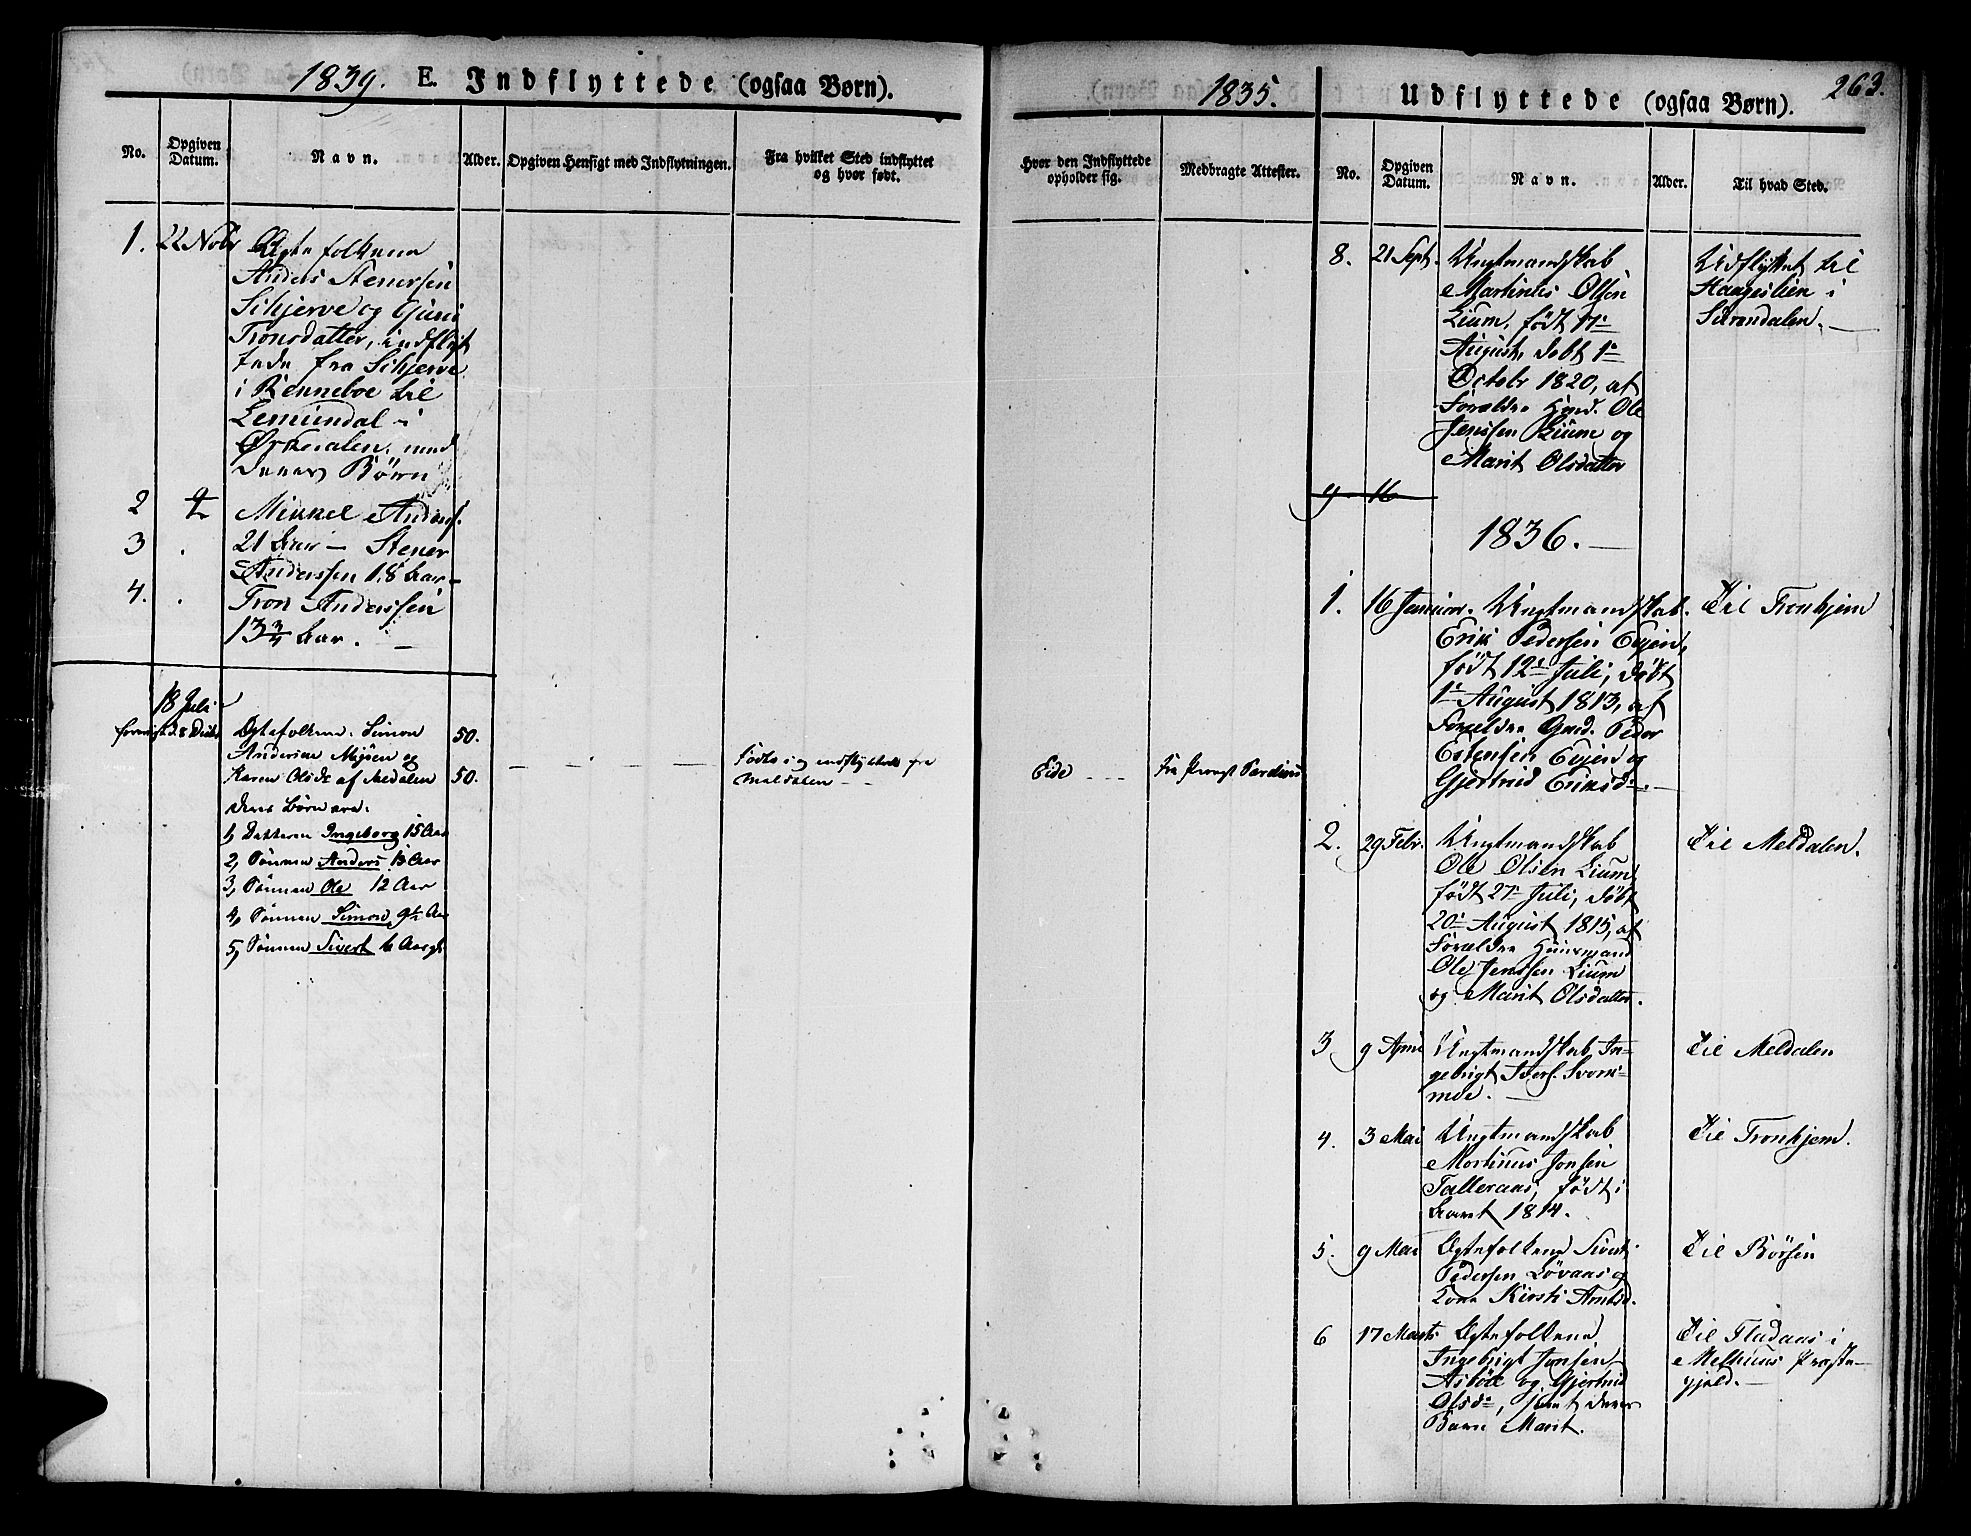 1839. E. Indflyttede (ogsaa Børn).
No.
Opgiven Datum.
Navn.
Alder.
Opgiven Hensigt med Indflytningen.
Fra hvilket Sted indflyttet og hvor født.
1. 22 Novbr Ægtefolkene
Anders Stenersen
Skjerve og Guri
Tronsdatter, indflyt
tede fra Skjerve
i Renneboe til
Lemundal i
Ørkedalen, med
deres Børn
2 Mikkel Anders.
3 . 21 Aar - Stener
Anderssen 18 Aar -
4. . Tron Anderssen
13 3/4 Aar. -
18 Juli
Ægtefolkene Simon 50.
Andersen og
Karen Olsdt af Meldalen 50.
deres Børn ere:
1, Datteren Ingeborg 15 Aar
2, Sønnen Anders Aar
3, Sønnen Ole 12 Aar
4, Sønnen Simon 9½ Aar
5, Sønnen Sivert 6 Aar
Fødte i og indflyttede fra
Meldalen - -
1835.
263.
Hvor den Indflyttede opholder sig.
Medbragte Attester.
Eide - - -
Fra Provst
Udflyttede (ogsaa Børn).
No.
Opgiven Datum.
Navn.
Alder.
Til hvad Sted.
8. 21 Sept. Ungtmandskab
Martinus Olsen
Lium, født 17de
August, døbt 1te
Octobr 1820, af
Forældre Huusmd. Ole
Jenssen Lium og
Marit Olsdatter
Udflyttet til
Haagenlien i
Surendalen. -
9 16
1836. -
1. 16 Januar. Ungtmandskab.
Erik Pedersen Evjen,
født 12te Juli, døbt
1te August 1813, af
Forældre Gmd. Peder
Estensen Evjen og
Gjertrud Eriksdr. -
Til Tronhjem
2. 29 Febr. Ungtmandskab
Ole Olsen Lium,
født 27de Juli, døbt
20de August 1815, af
Forældre Huusmand
Ole Jenssen Lium
og Marit Olsdatter.
Til Meldalen.
3 9 April Ungtmandskab In-
gebrigt Ivers. Svom-
moe. -
Til Meldalen
4. 3 Mai Ungtmandskab
Morthinus Jonsen
Talleraas, født i
Aaret 1814.
Til Tronhjem.
5. 9 Mai Ægtefolkene Sivert
Pedersen Løvaas og
Kone Kirsti Arntsd.
Til Børsen
6 17 Marts Ægtefolkene
Ingebrigt Jonsen
Asbøll og Gjertrud
Olsdr, samt deres
Barn Marit.
Til Fladaas i
Melhuus Præste-
gjæld. -